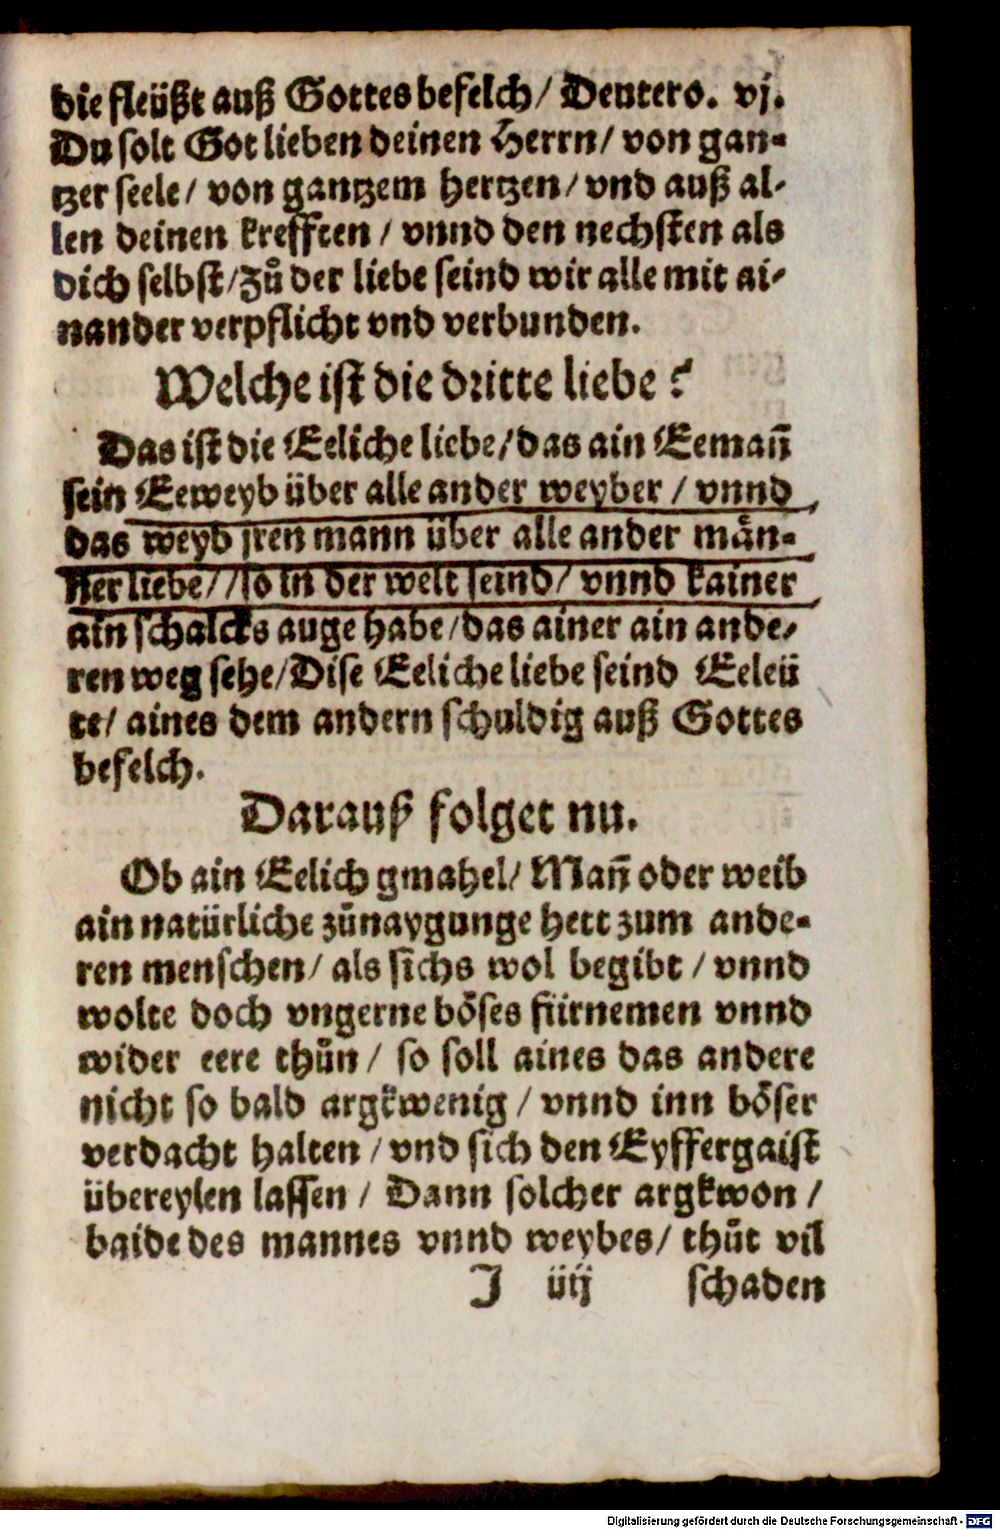 die fleüßt auß Gottes befelch/ Deutero. vj.
Du solt Got lieben deinen Herrn/ von gan-
tzer seele/ von gantzem hertzen/ vnd auß al-
len deinen krefften / vnnd den nechsten als
dich selbst/ Zů der liebe seind wir alle mit ai-
nander verpflicht vnd verbunden.
Welche ist die dritte liebe?
Das ist die Eeliche liebe/ das ain Eemañ
sein Eeweyb über alle ander weyber / vnnd
das weyb jren mann über alle ander män-
ner liebe/ /so in der welt seind/ vnnd kainer
ain schalcks auge habe/ das ainer ain ande-
ren weg sehe/ Dise Eeliche liebe seind Eeleü
te/ aines dem andern schuldig auß Gottes
befelch.
Darauß folget nu.
Ob ain Eelich gmahel/ Mañ oder weib
ain natürliche zůnaygunge hett zum ande-
ren menschen/ als sichs wol begibt / vnnd
wolte doch vngerne böses fürnemen vnnd
wider eere thůn/ so soll aines das andere
nicht so bald argkwenig / vnnd inn böser
verdacht halten / vnd sich den Eyffergaist
übereylen lassen / Dann solcher argkwon /
baide des mannes vnnd weybes/ thůt vil
J iiij schaden
Digitalisierung gefördert durch die Deutsche Forschungsgemeinschaft - DFG